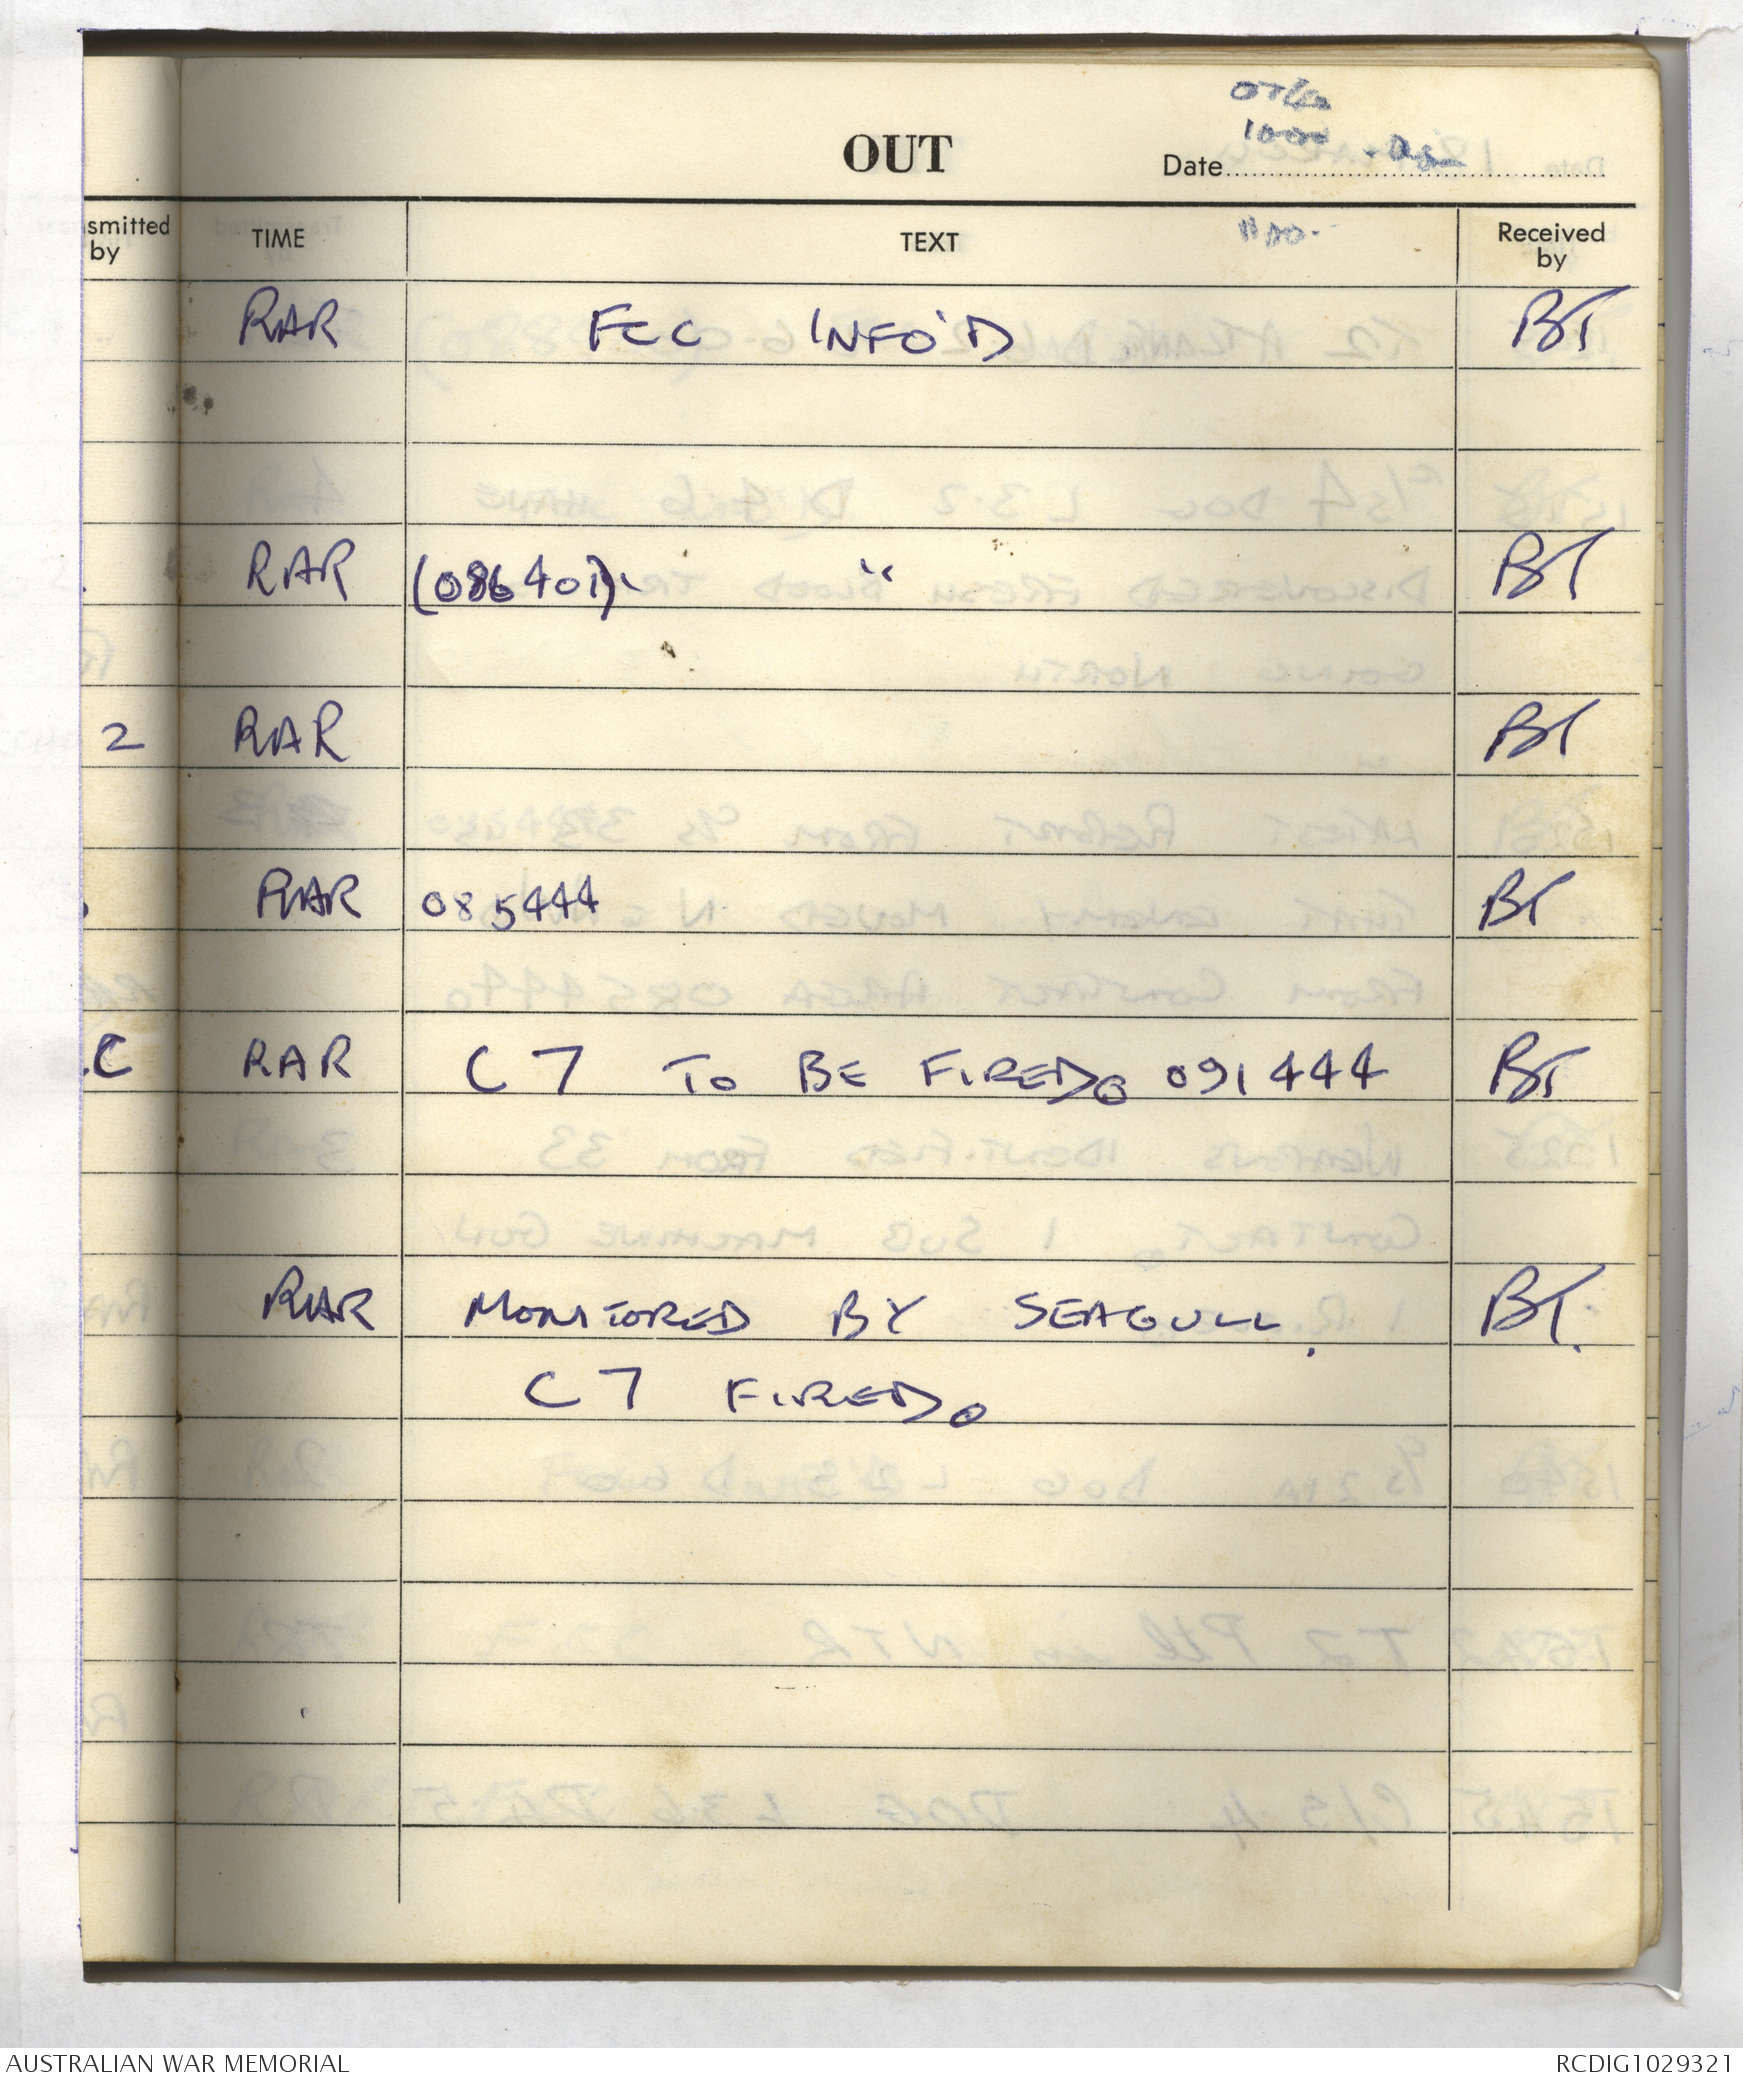 OUT
1000
Date
smitted by TIME TEXT Received by
RAR FCC INFO'D BT
RAR (086401) " BT
2 RAR BT
RAR 085444 BT
C RAR C7 TO BE FIRED. 091444 BT
RAR MONITORED BY SEAGULL. BT.
C7 FIRED.
AUSTRALIAN WAR MEMORIAL RCDIG1029321